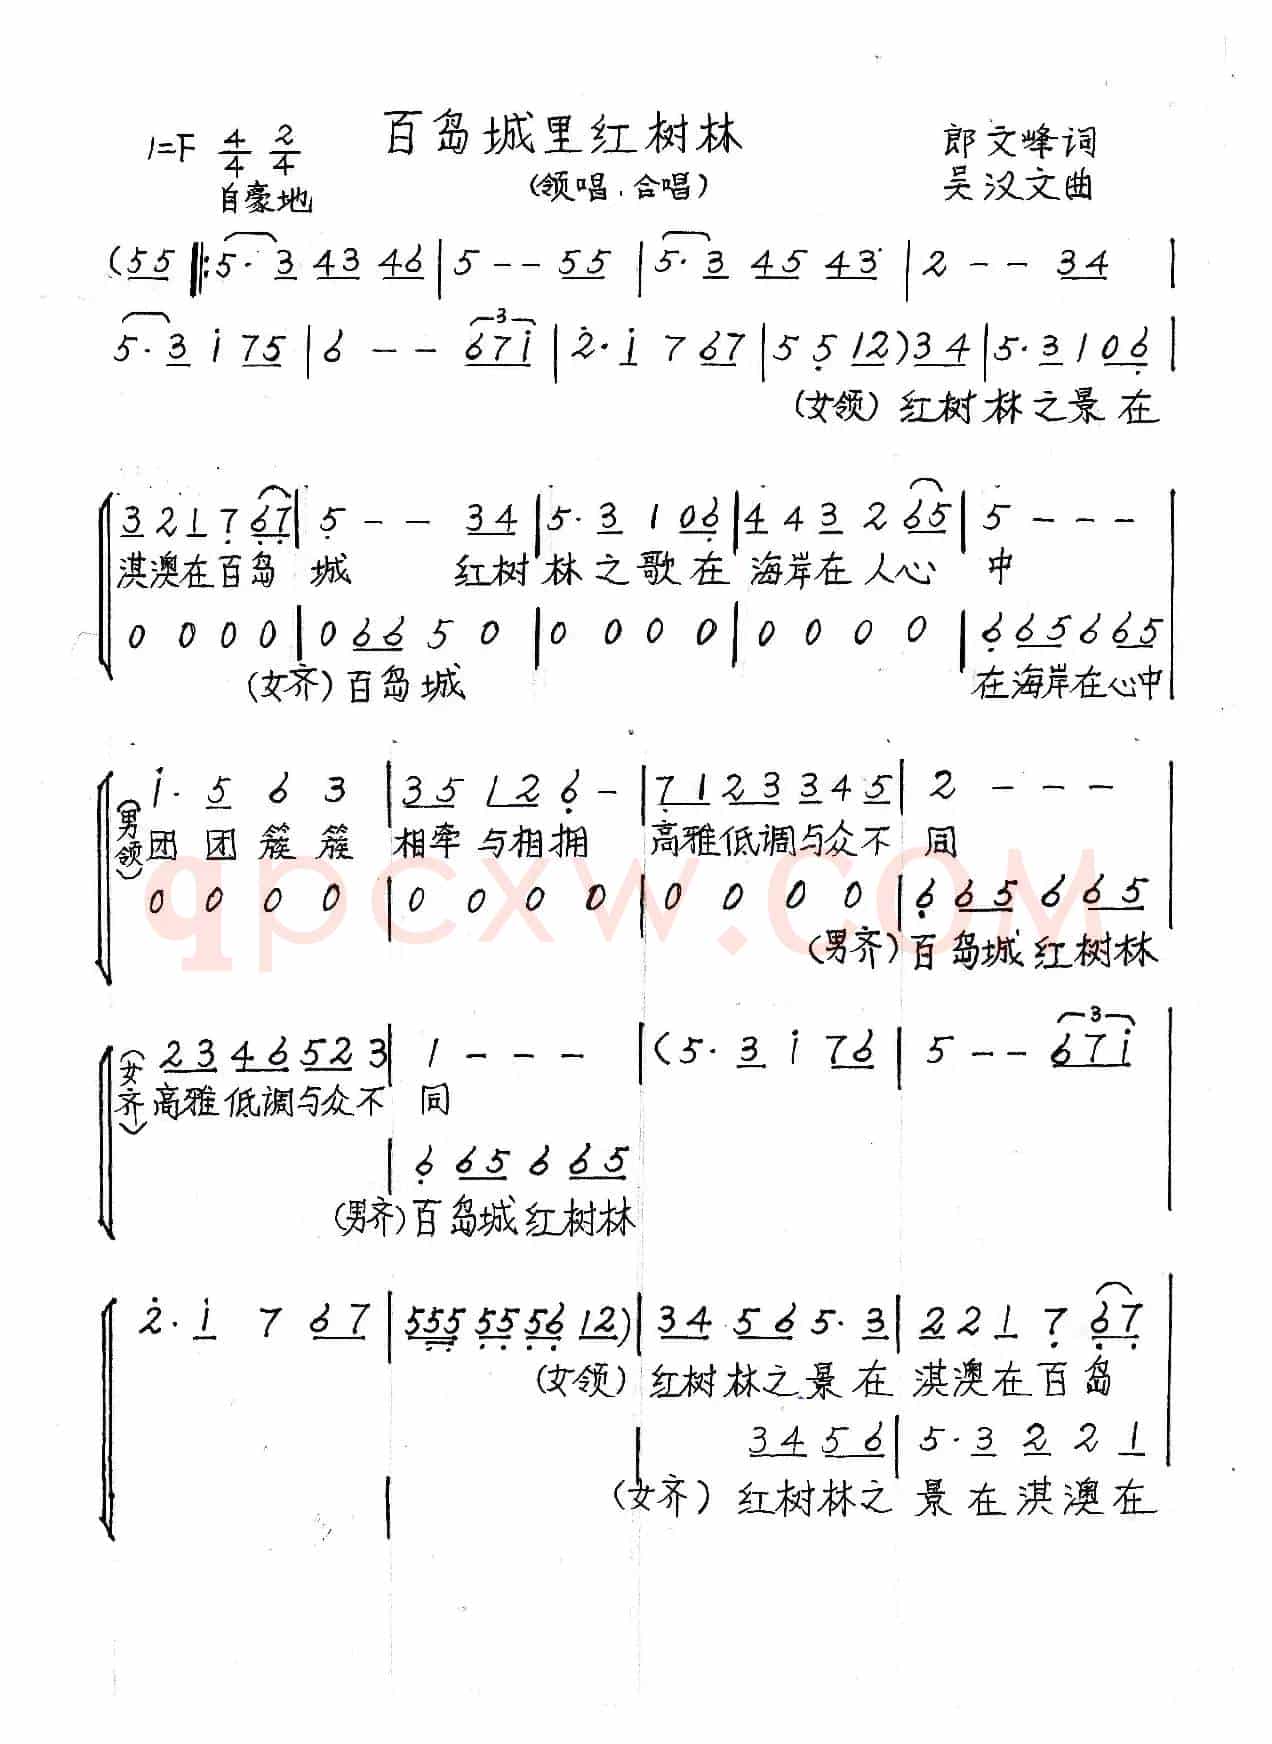 百岛城里红树林
1=F 4/4 2/4
郎文峰词
自豪地
(领唱.合唱)
吴汉文曲
(55 ‖:5·3 43 46 | 5 - - 55 | 5·3 45 43 | 2 - - 34 |
5·3 i 75 | 6 - - 67i | 2·i 7 67 | 5 5 12) 34 | 5·3 1 06 |
(女领) 红树林之景在
3 2 1 7 67 | 5 - - 34 | 5·3 1 06 | 4 4 3 2 65 | 5 - - -
淇澳在百岛 城 红树林之歌在 海岸在人心 中
0 0 0 0 | 0 66 5 0 | 0 0 0 0 | 0 0 0 0 | 6 65 6 65
(女齐) 百岛城 在海岸在心中
i· 5 6 3 | 35 12 6 - | 71 23 3 4 5 | 2 - - -
(男领) 团团簇簇 相牵与相拥 高雅低调与众不 同
0 0 0 0 | 0 0 0 0 | 0 0 0 0 | 6 65 6 65
(男齐) 百岛城红树林
23 46 52 3 | 1 - - - | (5·3 i 76 | 5 - - 67i
(女齐) 高雅低调与众不 同
| 6 65 6 65
(男齐) 百岛城红树林
2·i 7 67 | 555 55 56 12) | 34 56 5·3 | 2 2 1 7 67
(女领) 红树林之景在 淇澳在百岛
34 56 | 5·3 2 2 1
(女齐) 红树林之 景在淇澳在
qpcxw.COM